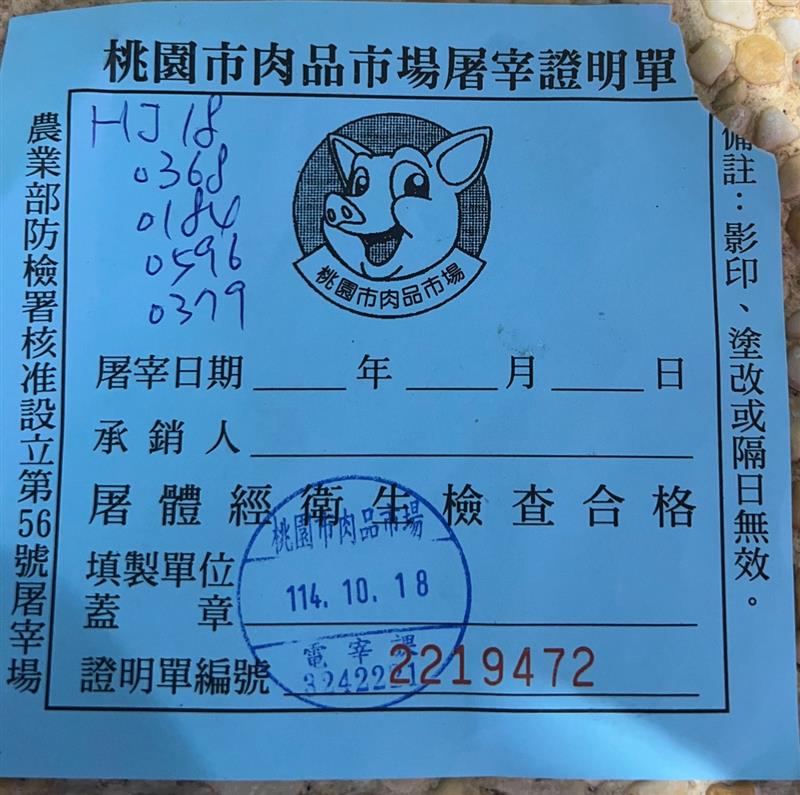 桃園市肉品市場屠宰證明單
農業部防檢署核准設立第56號屠宰場
HJ18
0368
0184
0596
0379
桃園市肉品市場
屠宰日期 年 月 日
承銷人
屠體經衛生檢查合格
填製單位
蓋章
桃園市肉品市場
114.10.18
電宰課
證明單編號 2219472
備註：影印、塗改或隔日無效。